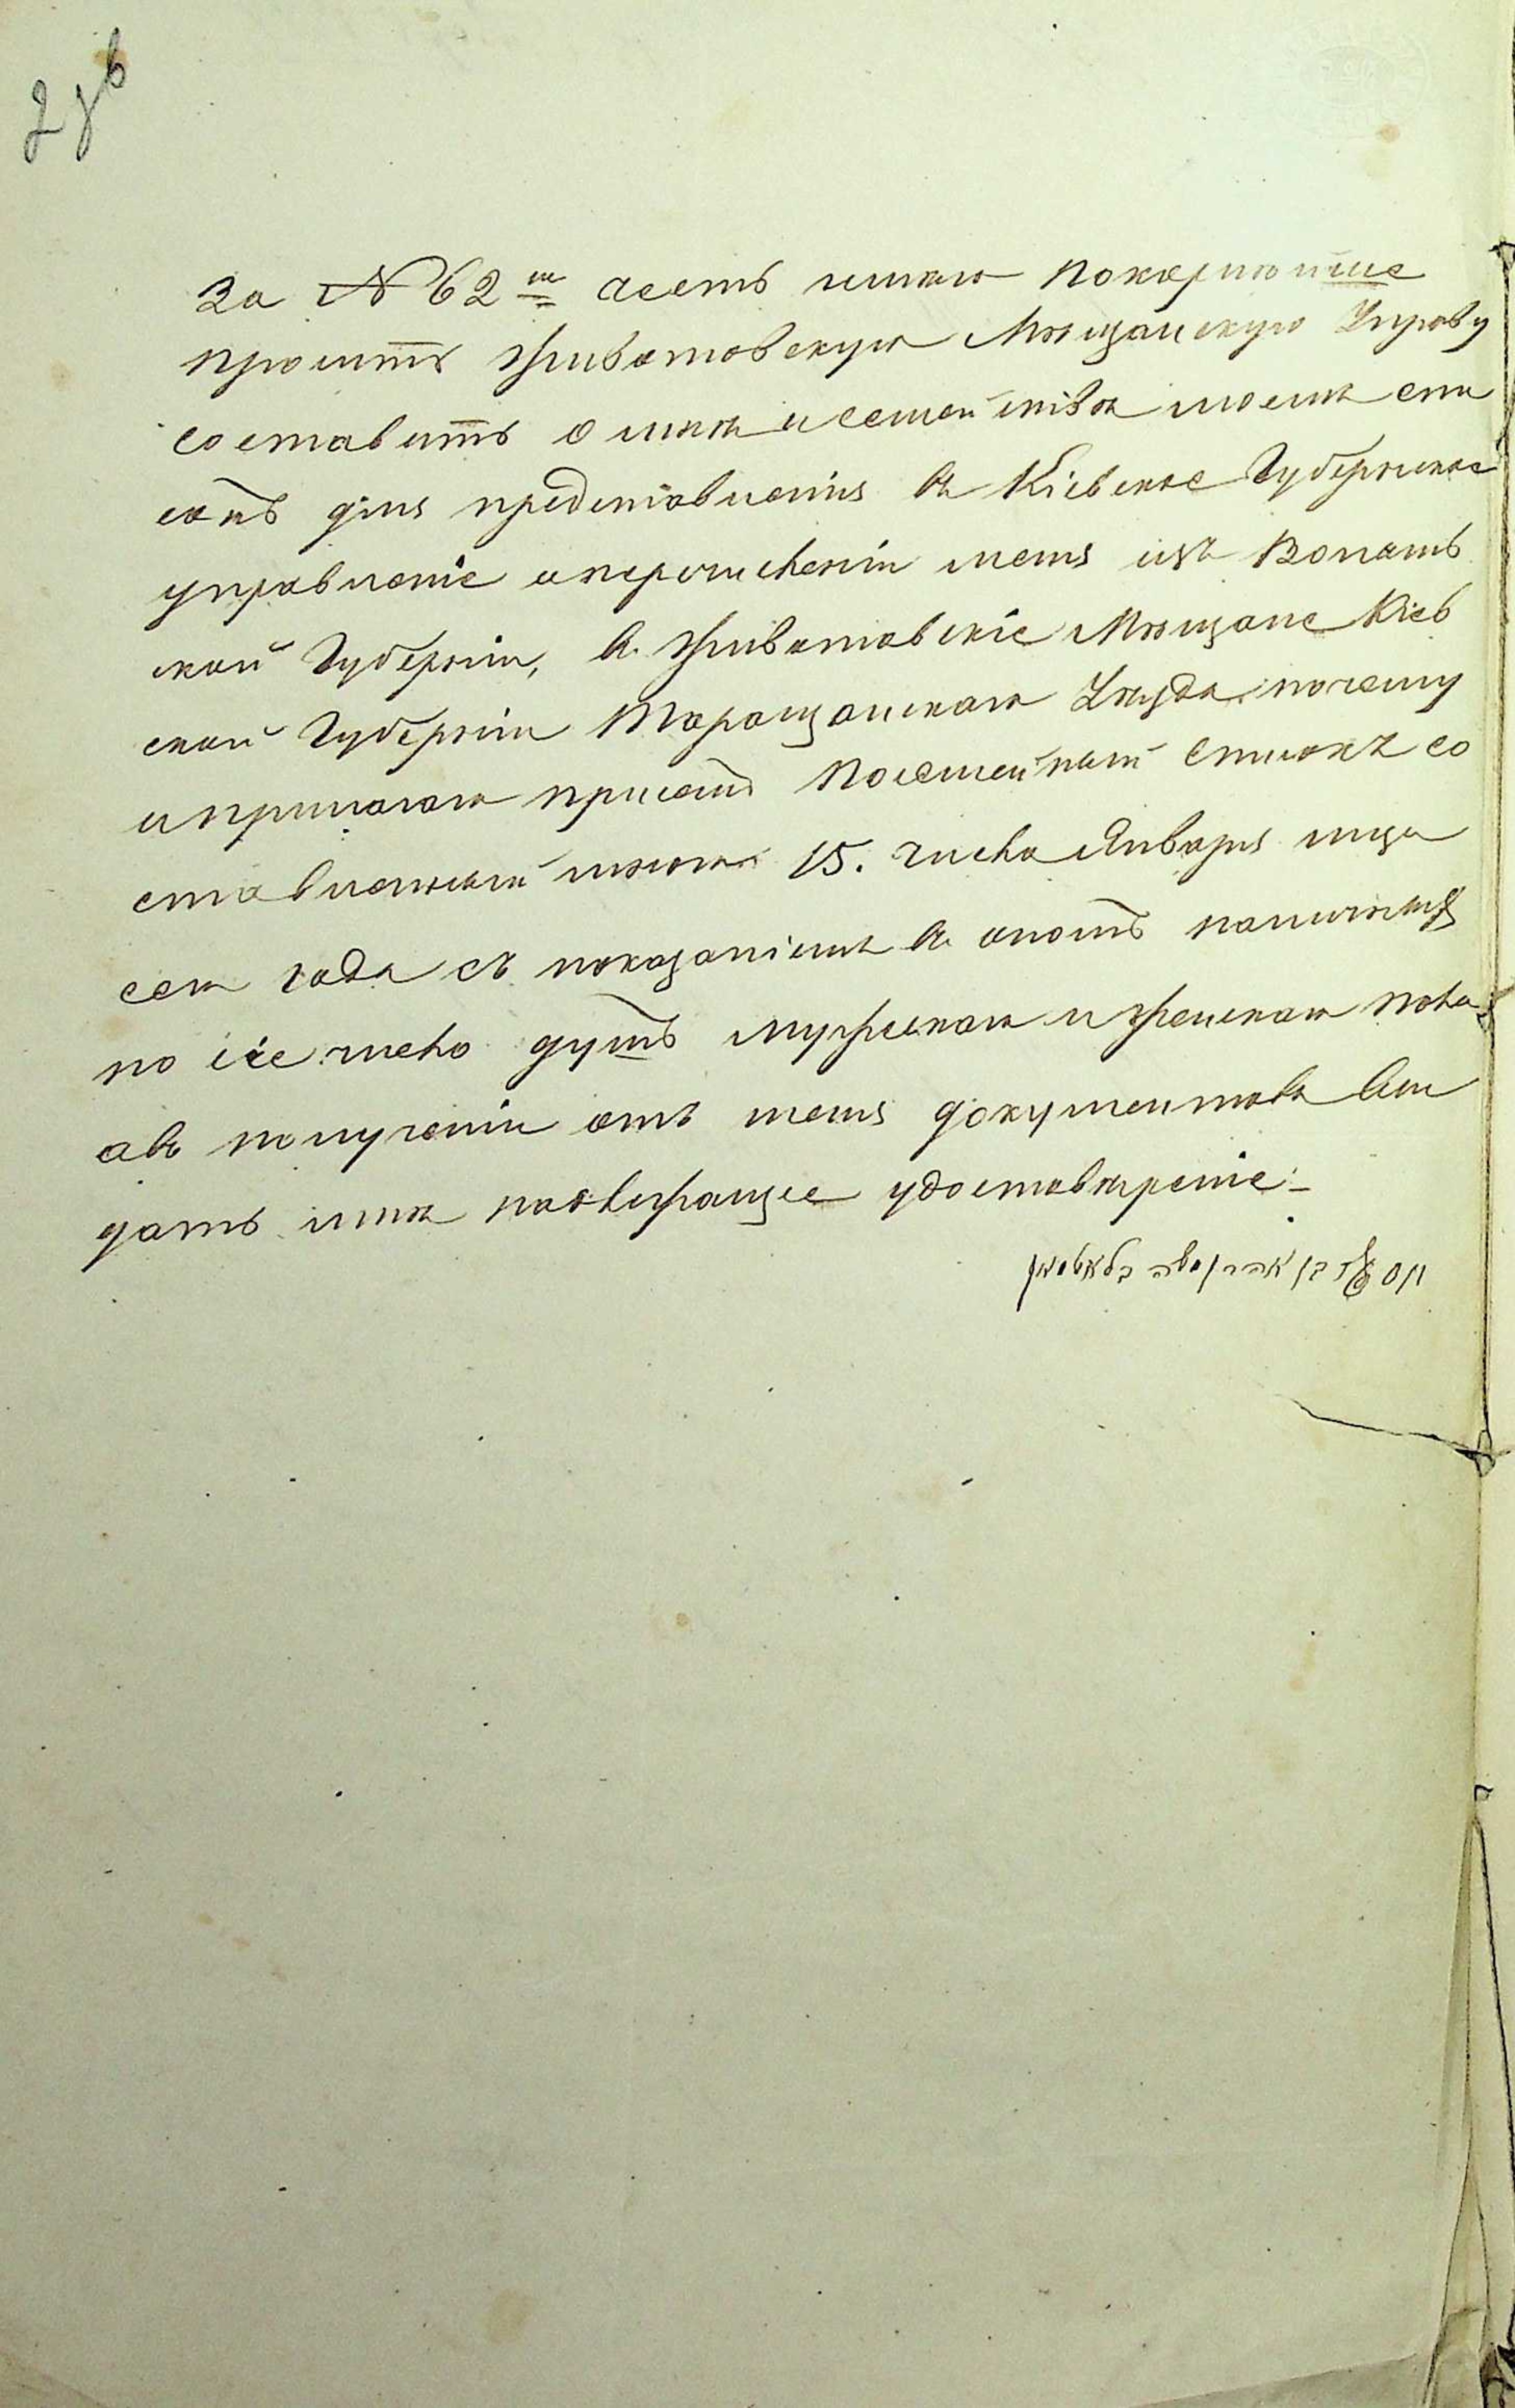 2 зв
За № 62м честь имею покорнейше
просить Животовскую Мещанскую Управу
составить о мне и семействе моем спи
сокъ для представленія въ Кіевское Губернское
управленіе о перечисленіи меня изъ
ской Губерніи, въ Животовскіе Мещане Кіев
ской Губерніи Таращанскаго Уезда, почему
и прилагаю присемъ посемейный списокъ со
ставленный мною 15. числа Января м҃ца
сего года съ показаніемъ въ ономъ
по сіе число душъ мужскаго и женскаго пола
а въ полученіи отъ меня документовъ вы
дать мне надлежащее удостовереніе